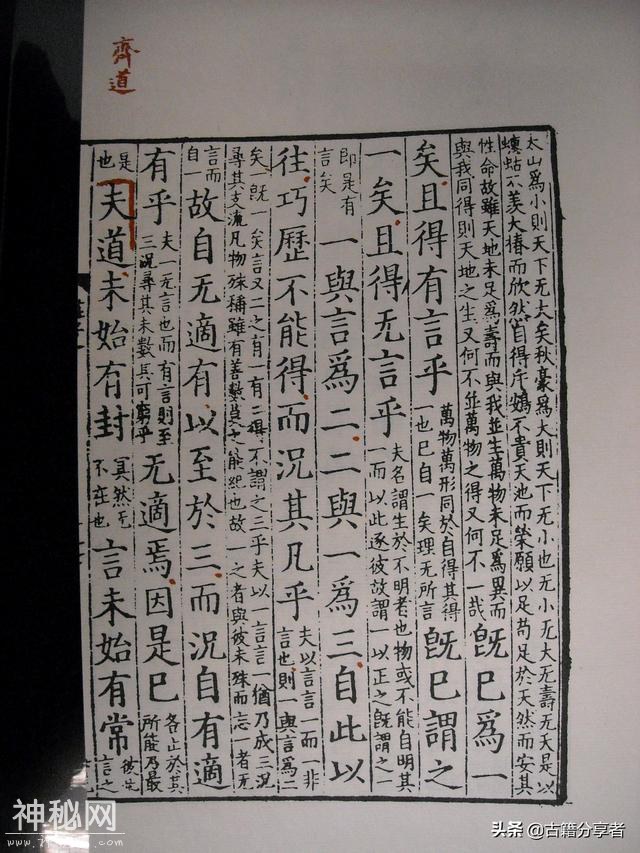 齊道
太山爲小則天下无大矣秋豪爲大則天下无小也无小无大无壽无夭是以
蟪蛄不羨大椿而欣然自得斥鴳不貴天池而榮願以足苟足於天然而安其
性命故雖天地未足爲壽而與我並生萬物未足爲異而
與我同得則天地之生又何不並萬物之得又何不一哉
既已爲一
矣且得有言乎
萬物萬形同於自得其得
一也已自一矣理无所言
既已謂之
一矣且得无言乎
夫名謂生於不明者也物或不能自明其
一而以此逐彼故謂一以正之既謂之一
即是有
言矣
一與言爲二二與一爲三自此以
往巧歷不能得而況其凡乎
夫以言言一而一非
言也則一與言爲二
矣一既一矣言又二之有一有二得不謂之三乎夫以一言言一猶乃成三況
尋其支流凡物殊稱雖有善數莫之能紀也故一之者與彼未殊而忘一者无
言而
自一
故自无適有以至於三而況自有適
有乎
夫一无言也而有言則至
三況尋其末數其可窮乎
无適焉因是已
各止於其
所能乃最
是
也
夫道未始有封
冥然无
不在也
言未始有常
彼此
言之
神秘网
头条 @古籍分享者